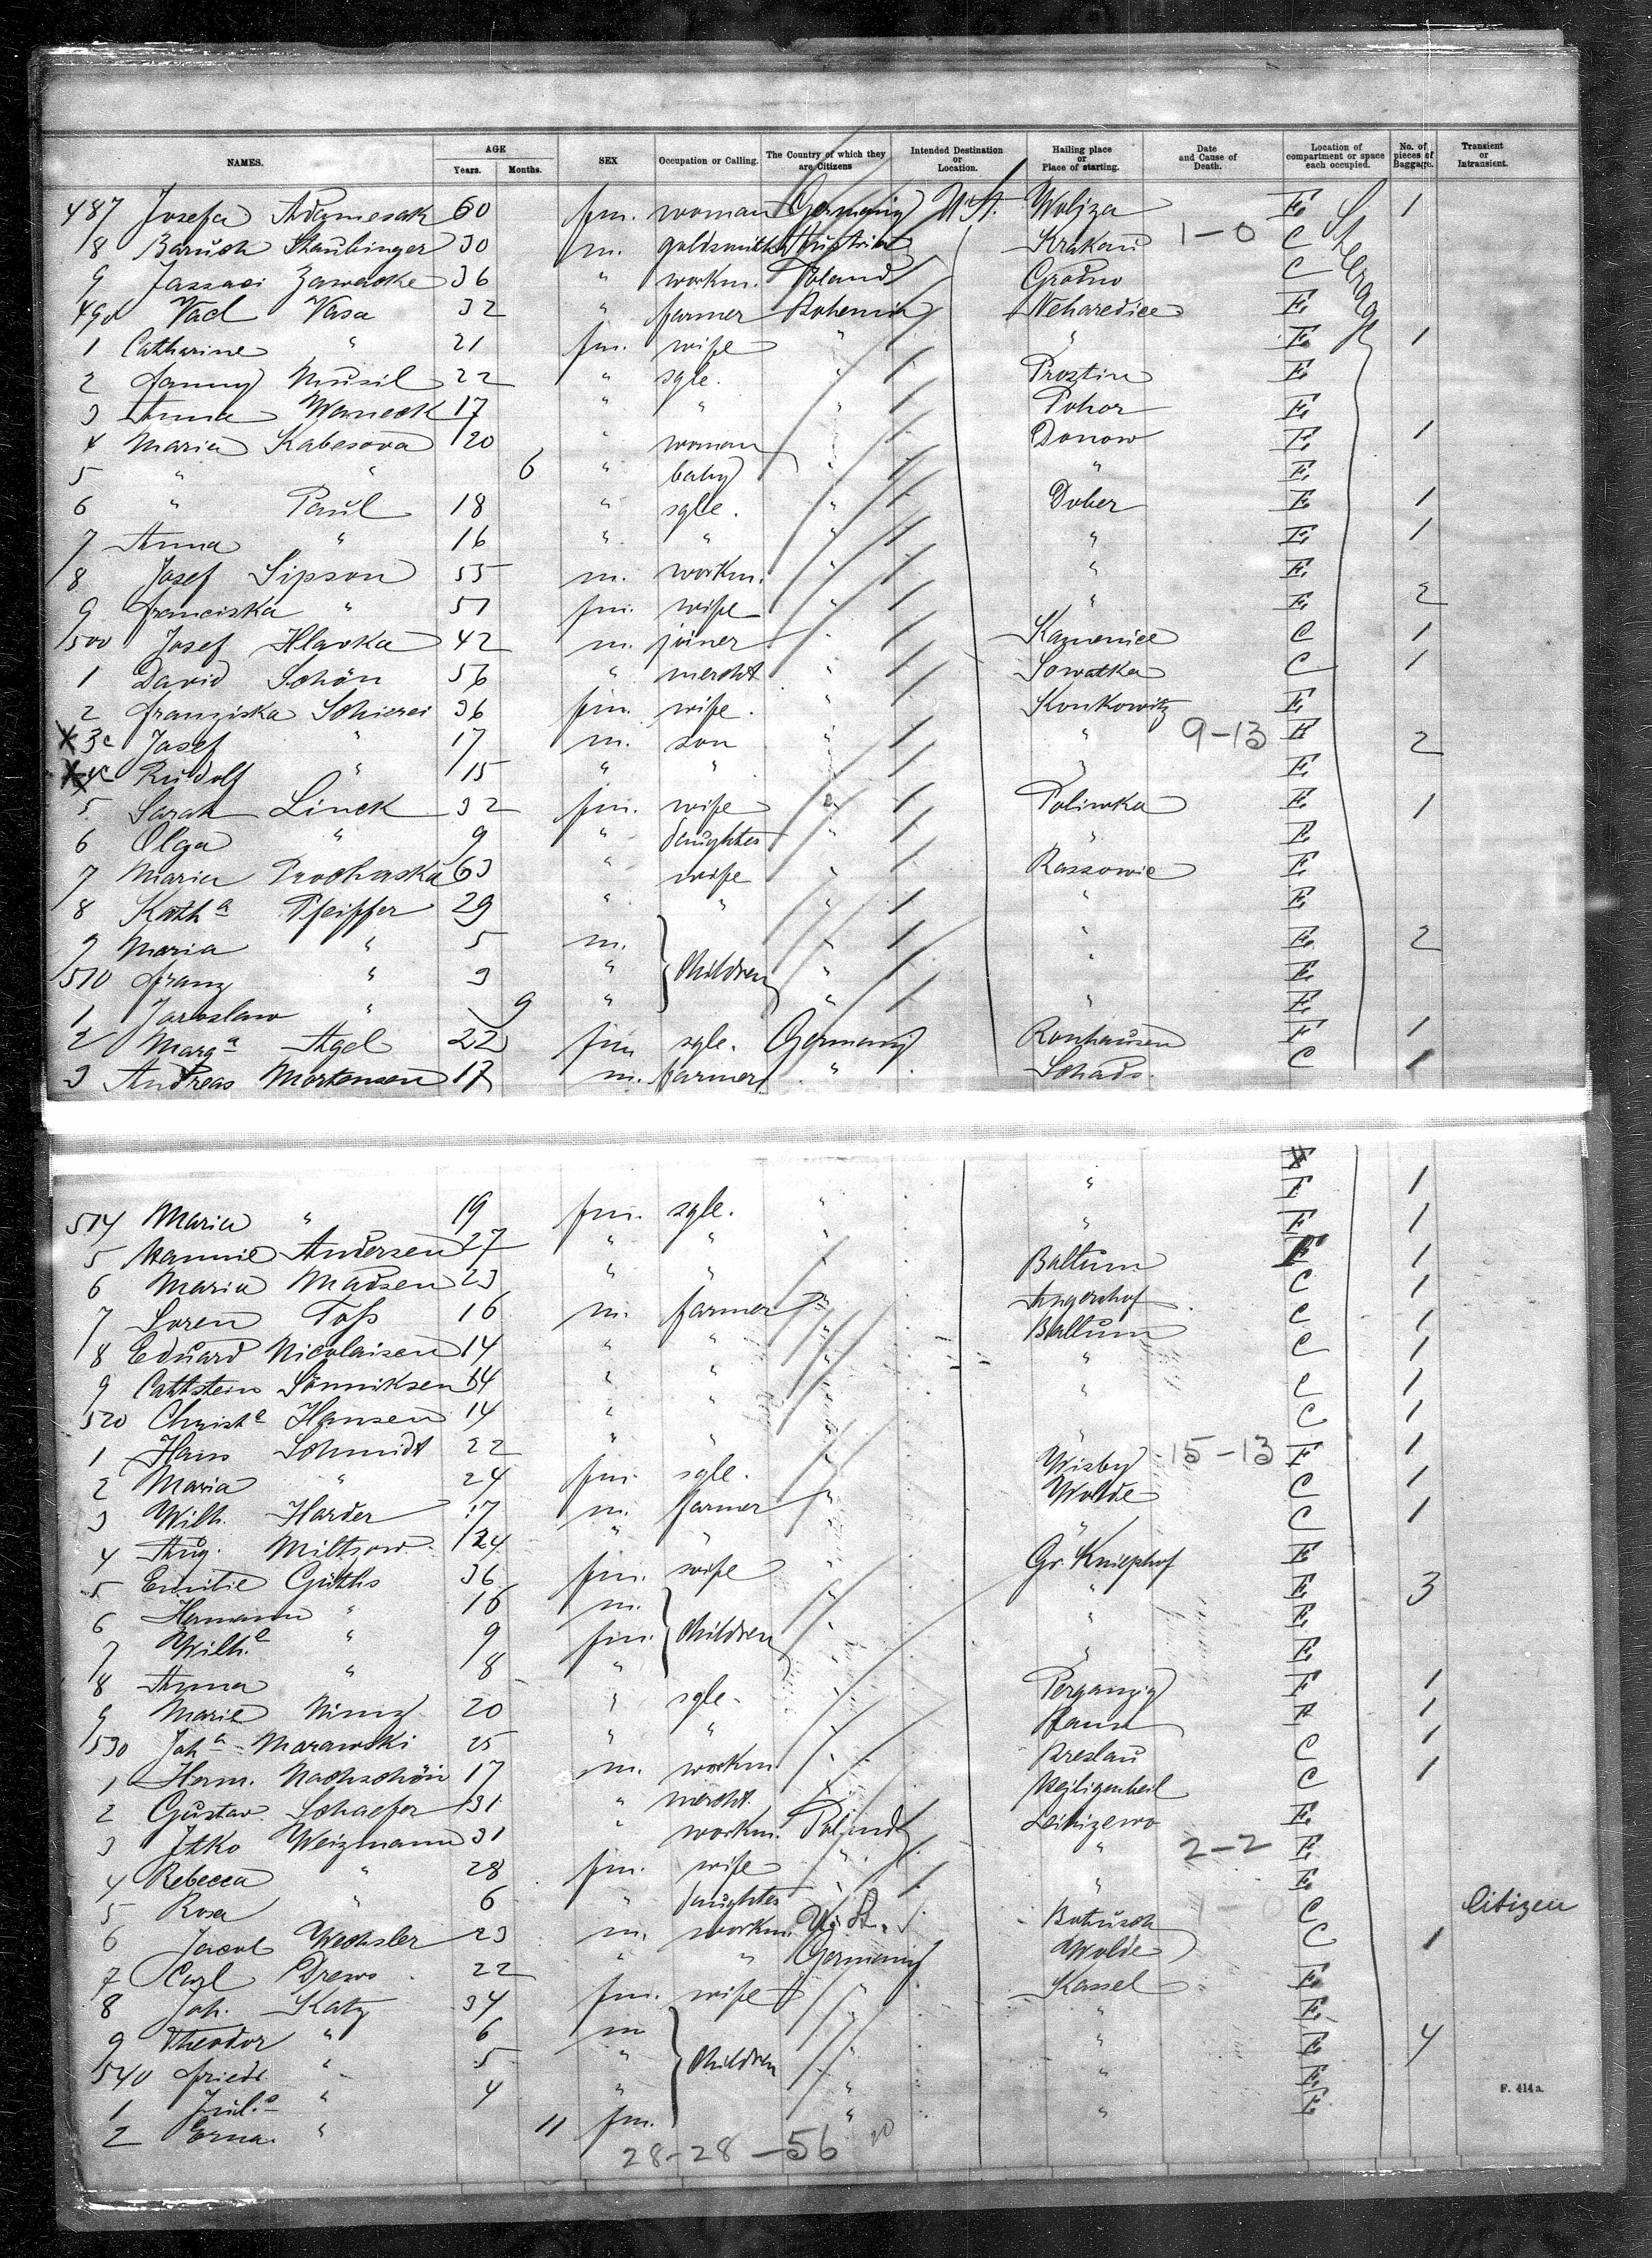 NAMES. AGE Years. Months. SEX Occupation or Calling. The Country of which they are Citizens Intended Destination or Location. Hailing place or Place of starting. Date and Cause of Death. Location of compartment or space each occupied. No. of pieces of Baggage. Transient or Intransient.
487 Josefa Adamesak 60 fm. woman Germany U St. Woljza E. 1
8 Baruch Staubinger 30 m. goldsmith Austria Krakau 1-0 C
9 36 " workm. Poland Grodno C
490 Vacl Vasa 32 " farmer Bohemia Neharedice E. Steerage
1 Catharine " 21 fm. wife " " E. 1
2 Fanny Musil 22 " sgle. " Prostin E
3 Anna Waneck 17 " " " Pohor E.
4 Maria Kabesova 20 " woman Donow E. 1
5 " " 6 " baby " " E.
6 " Paul 18 " sgle. " Dober E 1
7 Anna " 16 " " " E. 1
8 Josef Sipson 55 m. workm. " " E.
9 Franciska " 51 fm. wife " " E 2
500 Josef Hlavka 42 m. joiner " Kamenice C 1
1 David Schön 56 " mercht " Sowatka C 1
2 Franziska Schierei 36 fm. wife. " Konkowitz E.
X 3c Josef " 17 m. son " " 9-13 E 2
X 4c Rudolf " 15 " " " " E.
5 Sarah Linek 32 fm. wife " Poliwka E. 1
6 Olga " 9 " daughter " " E.
7 Maria Prochaska 63 " wife " Rassowic E.
8 Kath a Pfeiffer 29 " " " " E.
9 Maria " 5 m. " " E. 2
510 Franz " 3 " Children " " E.
1 Jaroslaw " 9 " " " E.
2 Marg a Agel 22 fm sgle. Germany Ronhausen F 1
3 Andreas Mortensen 17 m. farmer " Schads. C 1
514 Maria " 19 fm. sgle. " " F 1
5 Hannie Andersen 27 " " " " F 1
6 Maria Madsen 23 " " " Baltum F 1
7 Soren Tofs 16 m. farmer " Angershof C 1
8 Eduard Nicolaisen 14 " " " Baltum C 1
9 Cattstein Sönniksen 14 " " " " C 1
520 Christ e Hansen 14 " " " C 1
1 Hans Schmidt 22 " " " C 1
2 Maria " 24 fm. sgle. " Wisby 15-13 F 1
3 Wilh. Harder 17 m. farmer " Wolde C 1
4 Aug. Miltzow 24 " " " C 1
5 Emilie Güths 36 fm. wife " Gr. Kniephof E
6 Hermann " 16 m. " " E. 3
7 Wilh. e " 9 fm. Children " " E.
8 Anna " 8 " " " E.
9 Marie Nimz 20 " sgle. " F 1
530 Joh a Marawski 25 " " " F 1
1 Herm. Nachschön 17 m. workm " Breslau C 1
2 Gustav Schaefer 31 " mercht. " Heiligenbeil C 1
3 Itko Weizmann 31 " workm. Poland E.
4 Rebecca " 28 fm. wife " " 2-2 E.
5 Rosa " 6 " daughter " E.
6 Jacob Wechsler 23 m. workm. U. St. Botusch C Citizen
7 Carl Drews 22 " " Germany Wolde C 1
8 Joh. Katz 34 fm. wife " Kassel E.
9 Theodor " 6 m " " E.
540 Friedr. " 5 " Children " " E 4
1 Jul. e " 4 " " " E.
2 Erna. " 11 fm. " " E
28-28-56
F. 414a.